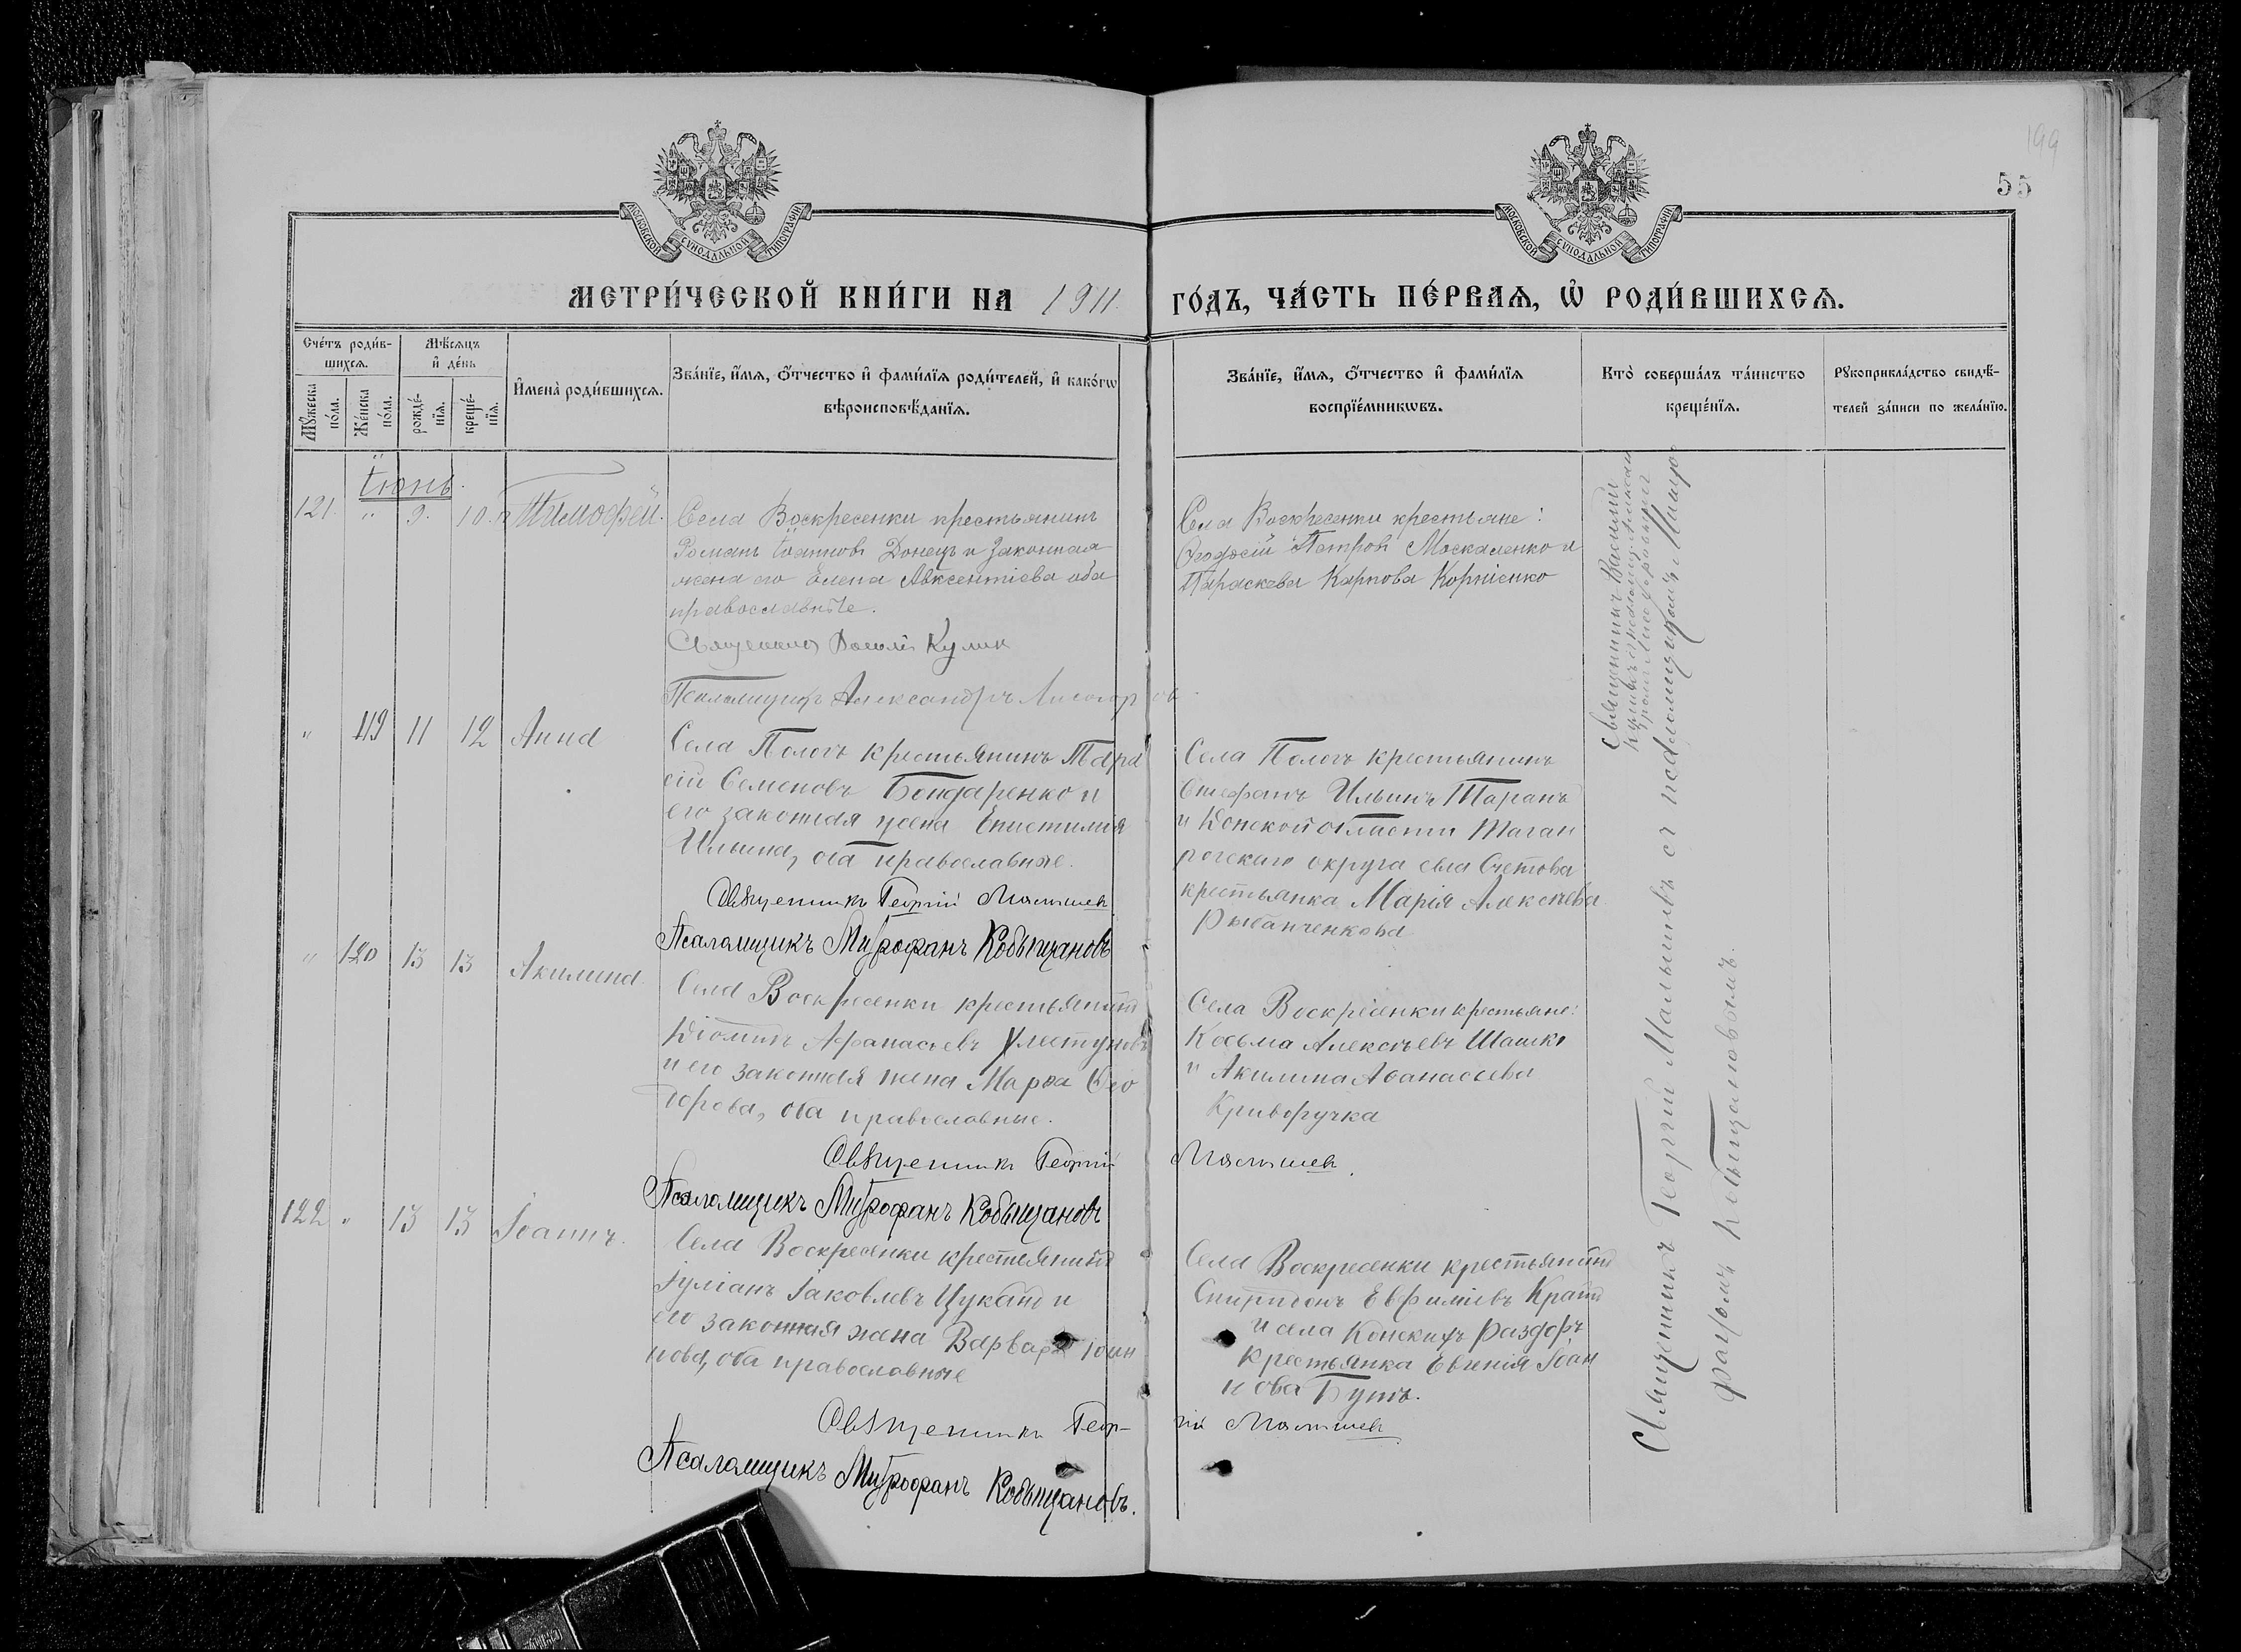 199
55
МОСКОВСКОЙ СѴНОДАЛЬНОЙ ТИПОГРАФІИ
МОСКОВСКОЙ СѴНОДАЛЬНОЙ ТИПОГРАФІИ
МЕТРИ́ЧЕСКОЙ КНИ́ГИ НА 1911
ГО́ДЪ, ЧА́СТЬ ПЕ́РВАѦ, Ѡ҆ РОДИ́ВШИХСѦ.
Сче́тъ роди́в-
шихсѧ.
Мꙋ́жеска по́ла.
Же́нска по́ла.
Мѣ́сѧцъ
и҆ де́нь
рожде́-
нїѧ.
креще́-
нїѧ.
И҆мена̀ роди́вшихсѧ.
Зва́нїе, и҆́мѧ, ѻ҆́тчество и҆ фами́лїѧ роди́телей, и҆ како́гѡ
вѣроисповѣ́данїѧ.
Зва́нїе, и҆́мѧ, ѻ҆́тчество и҆ фами́лїѧ
воспрїе́мникѡвъ.
Кто̀ соверша́лъ та́инство
креще́нїѧ.
Рꙋкоприкла́дство свидѣ́-
телей за́писи по жела́нїю.
Іюнь.
121. " 9. 10. Тимофей.
Села Воскресенки крестьянинъ
Романъ Іоанновъ Донецъ и законная
жена его Елена Авксентіева оба
православные.
Священникъ Василій Кулик
Псаломщикъ Александръ
Села Воскресенки крестьяне:
Петровъ Москаленко и
Параскева Карпова Корніенко
Священникъ Василій
" 119 11 12 Анна
Села Пологъ крестьянинъ Тара
сій Семеновъ Бондаренко и
его законная жена Епистимія
Ильина, оба православные.
Священникъ Георгій Малышев
Псаломщикъ Митрофанъ Кобыщановъ
Села Пологъ крестьянинъ
Стефанъ Ильинъ Таранъ
и Донской области Таган
рогскаго округа села
крестьянка Марія Алексѣева
" 120 13 13 Акилина
Села Воскресенки крестьянинъ
Аѳанасьевъ
и его законная жена Марѳа Ѳео
дорова, оба православные.
Священникъ Георгій Малышев
Псаломщикъ Митрофанъ Кобыщановъ
Села Воскресенки крестьяне:
Косьма Алексѣевъ Шашко
и Акилина Аѳанасьева
Криворучка
122 " 13 13 Іоаннъ.
Села Воскресенки крестьянинъ
Іуліанъ Іаковлевъ Цуканъ и
его законная жена Варвара Іоан
нова, оба православные
Священникъ Геор- гій Малышев
Псаломщикъ Митрофанъ Кобыщановъ.
Села Воскресенки крестьянинъ
Спиридонъ Евфиміевъ
и села Конскихъ Раздоръ
крестьянка Евгенія Іоан
нова Бутъ.
Священникъ Георгій Малышевъ съ псаломщикомъ Митро
фаномъ Кобыщановымъ.